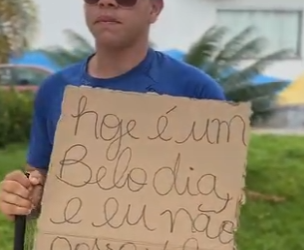 hoje é um
Belo dia,
e eu não
posso